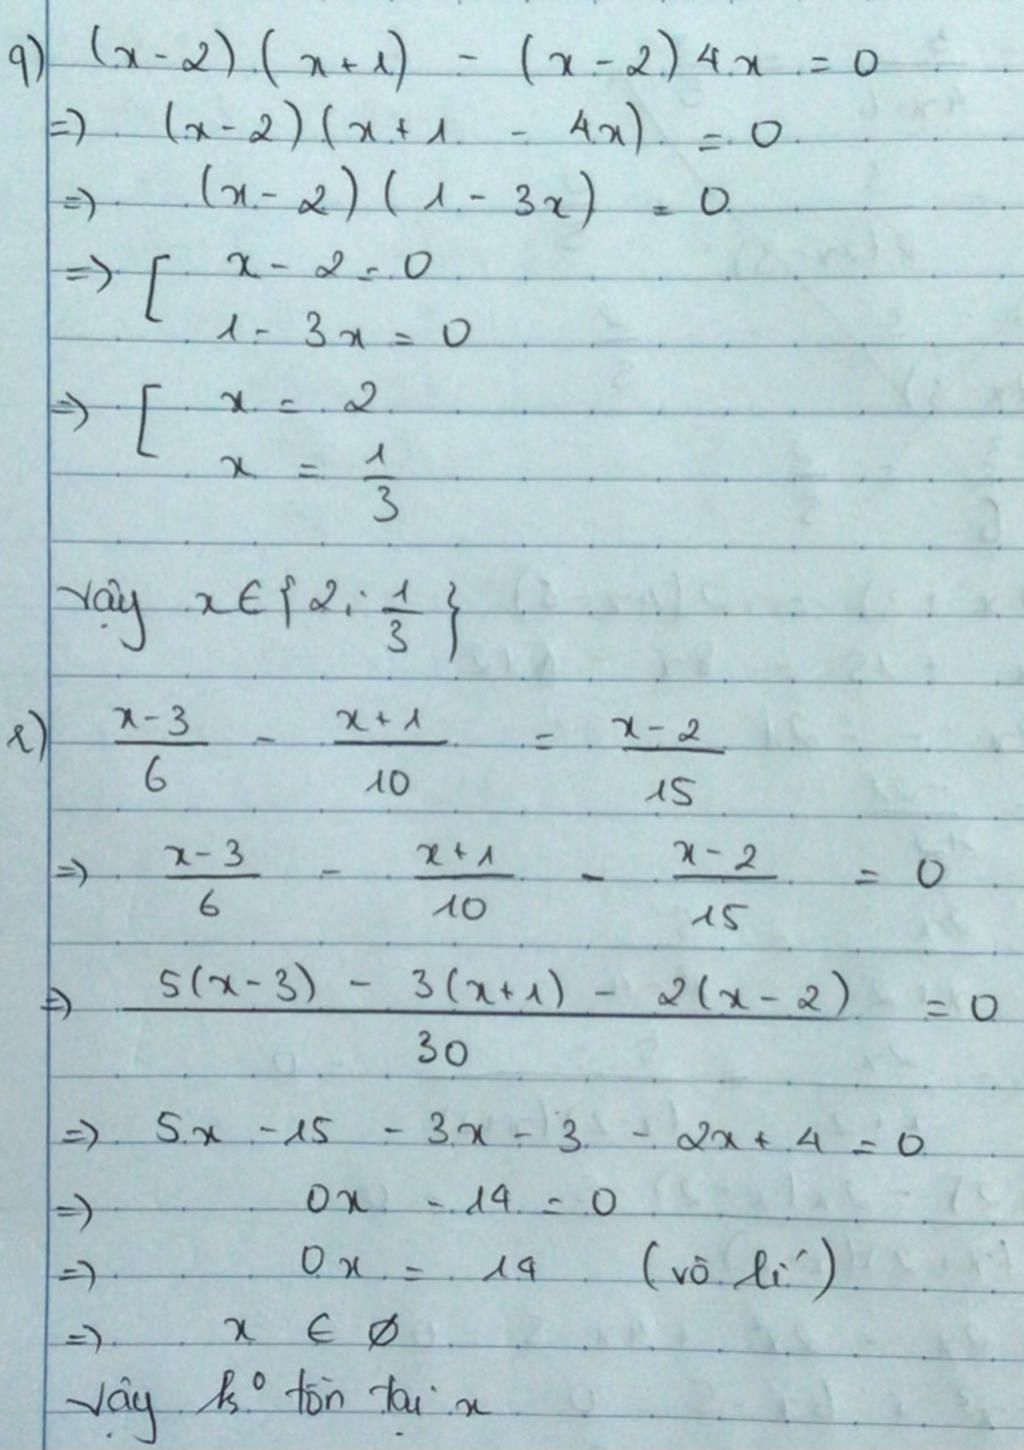 q) (x-2).(x+1) - (x-2)4x = 0
=> (x-2)(x+1 - 4x) = 0
=> (x-2)(1-3x) = 0
=> [ x-2=0
1-3x=0
=> [ x = 2
x = 1/3
Vậy x∈{2; 1/3}
r) (x-3)/6 - (x+1)/10 = (x-2)/15
=> (x-3)/6 - (x+1)/10 - (x-2)/15 = 0
=> (5(x-3) - 3(x+1) - 2(x-2))/30 = 0
=> 5x -15 - 3x - 3 - 2x + 4 = 0
=> 0x - 14 = 0
=> 0x = 14 (vô lí)
=> x ∈ ∅
Vậy k° tồn tại x